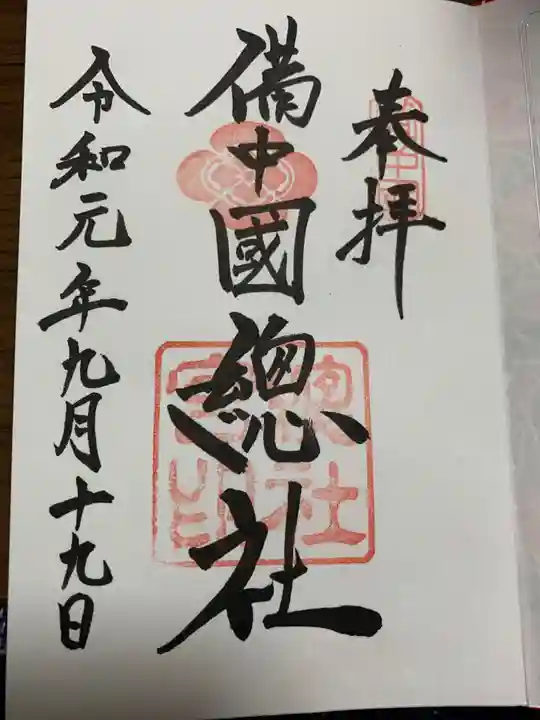 奉拝
備中國總社
総社宮印
令和元年九月十九日